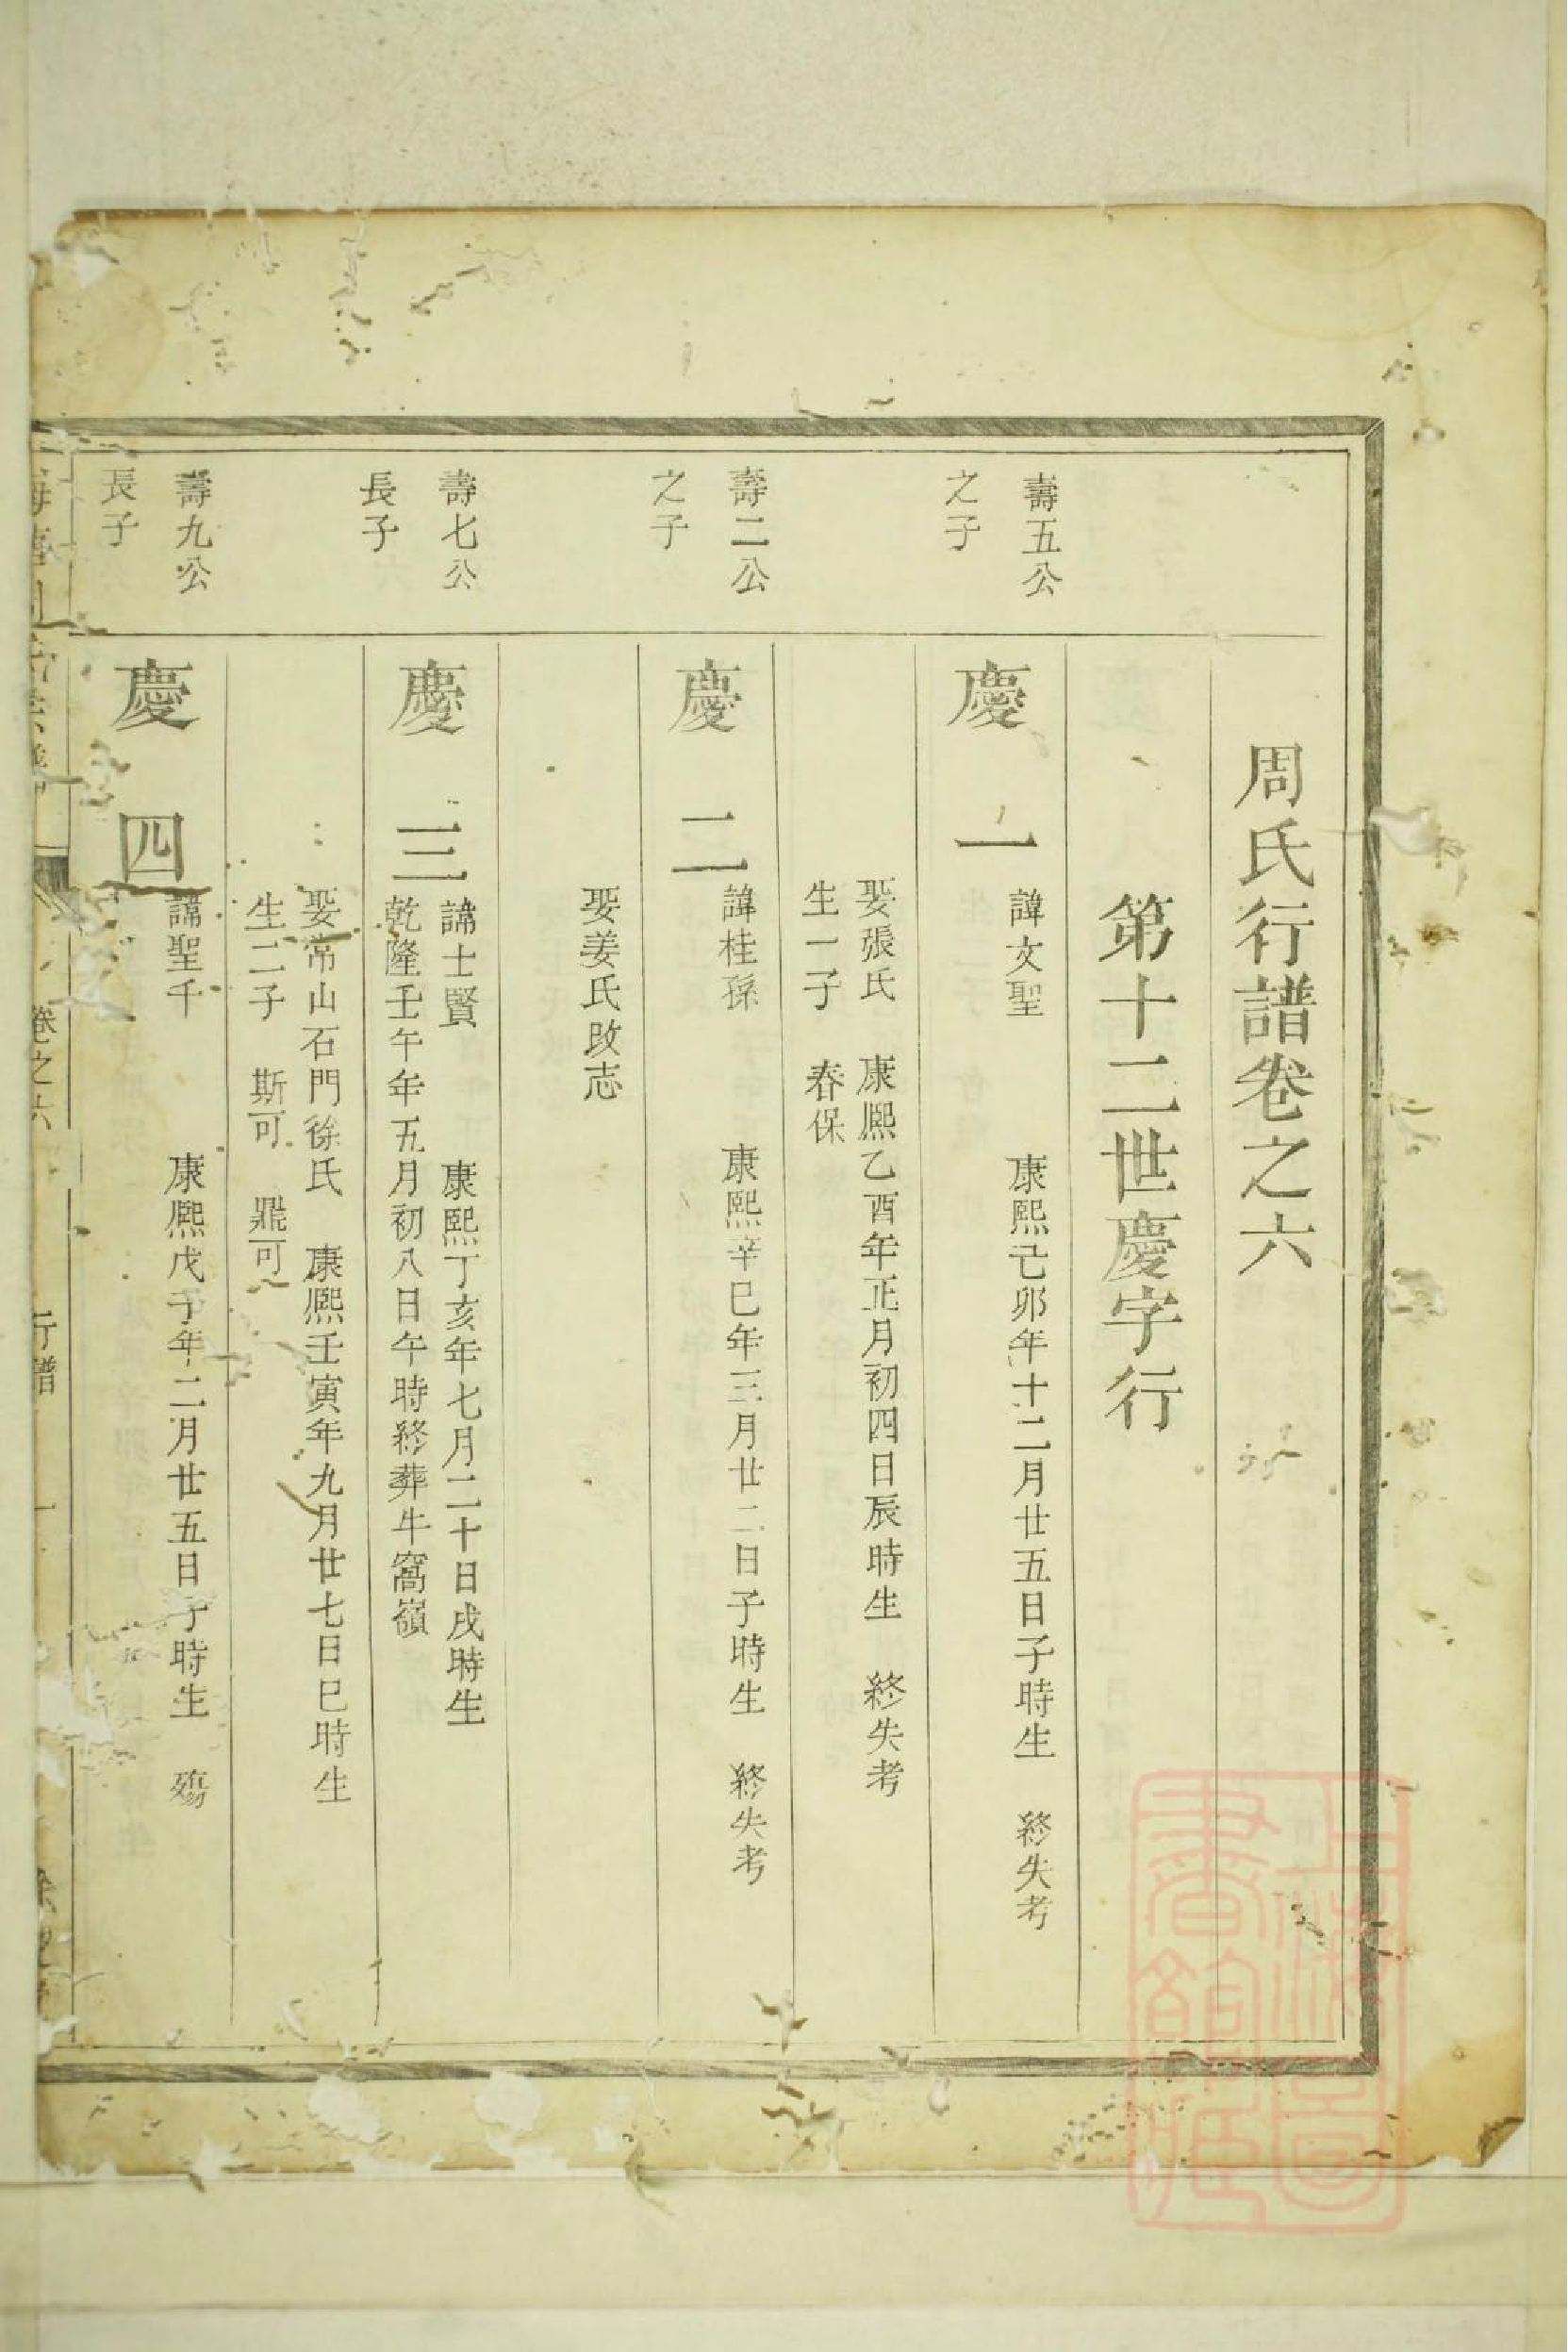 周氏行譜卷之六
第十二世慶字行
壽五公
之子
慶一
諱文聖 康熙己卯年十二月廿五日子時生 終失考
娶張氏 康熙乙酉年正月初四日辰時生 終失考
生一子 春保
壽二公
之子
慶二
諱桂孫 康熙辛巳年三月廿二日子時生 終失考
娶姜氏改志
壽七公
長子
慶三
諱士賢 康熙丁亥年七月二十日戌時生
乾隆壬午年五月初八日午時終葬牛窩嶺
娶常山石門徐氏 康熙壬寅年九月廿七日巳時生
生二子 斯可 鼎可
壽九公
長子
慶四
諱聖千 康熙戊子年二月廿五日子時生 殤
卷之六 行譜 一
上海圖
書館藏